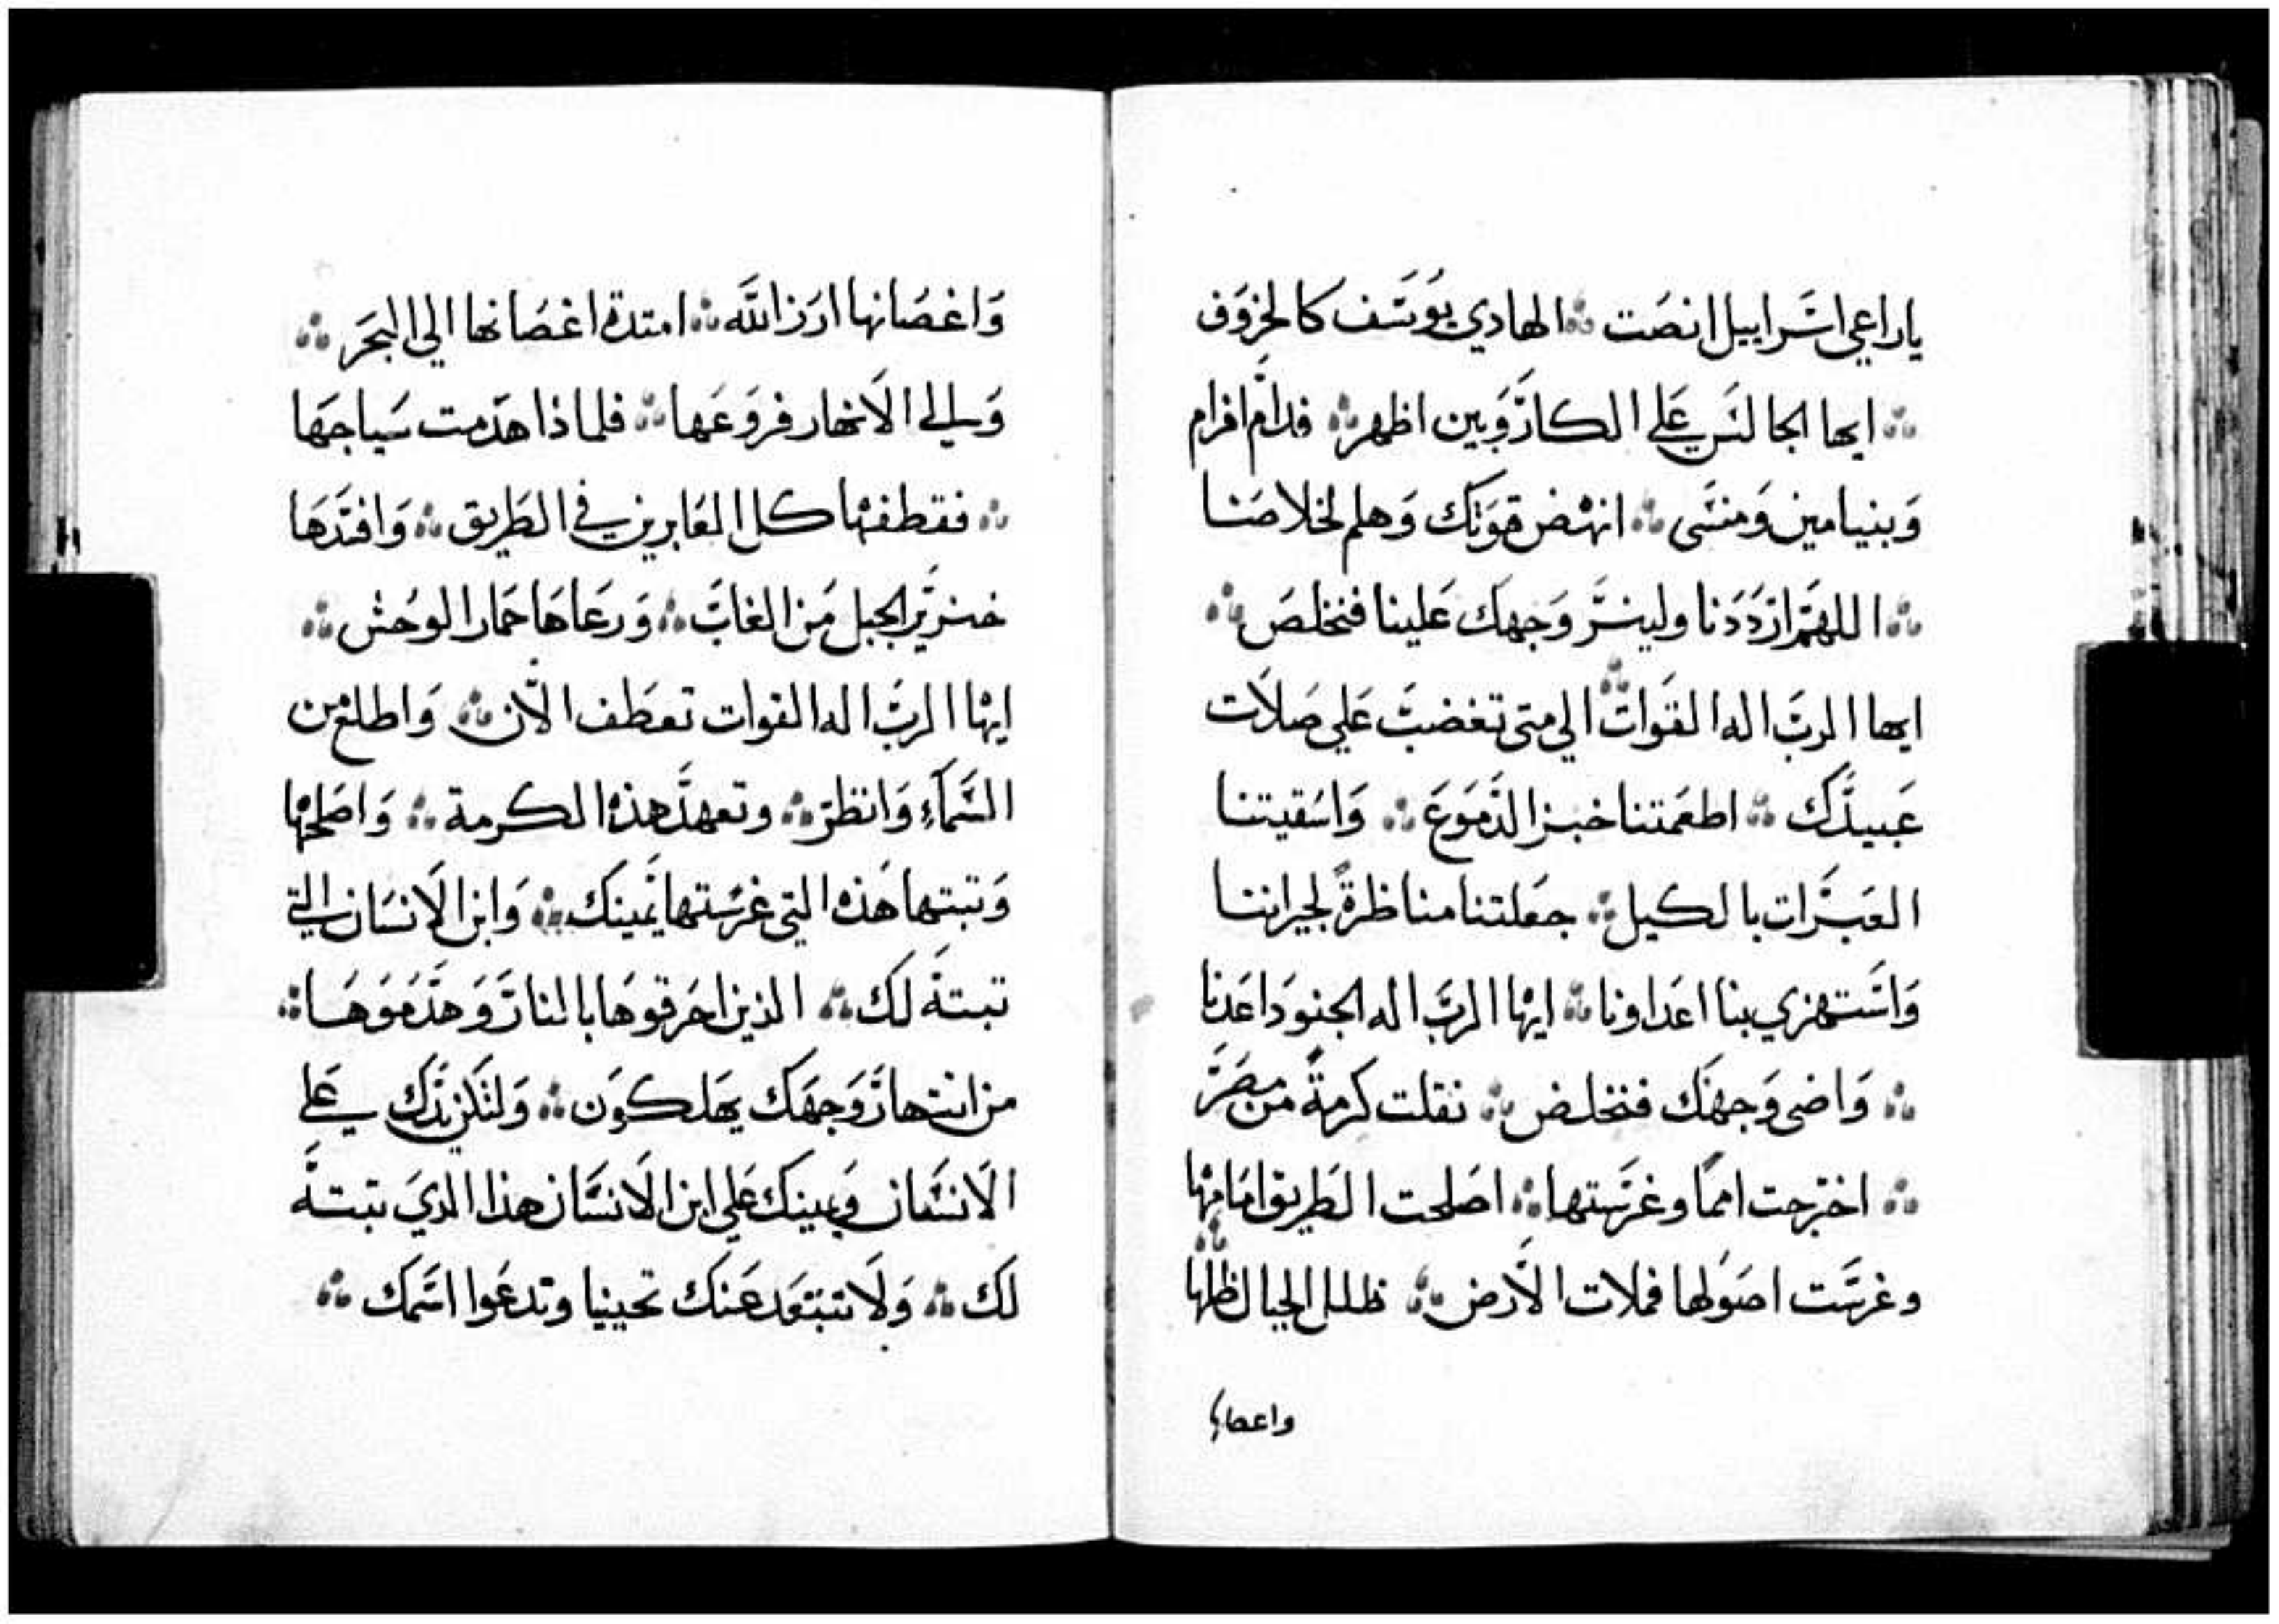 ياراعي اسراييل انصت ؞ الهادي يوسف كالخروف
؞ ايها الجالس علي الكاروبين اظهر ؞ قدام افرام
وبنيامين ومنسى ؞ انهض قوتك وهلم لخلاصنا
؞ اللهم ارددنا ولينر وجهك علينا فنخلص ؞
ايها الرب اله القوات ؞ الي متى تغضب علي صلات
عبيدك ؞ اطعمتنا خبز الدموع ؞ واسقيتنا
العبرات بالكيل ؞ جعلتنا مناظرةً لجيراننا
واستهزي بنا اعداونا ؞ ايها الرب اله الجنود اعدنا
؞ واضي وجهك فنخلص ؞ نقلت كرمةً من مصر
؞ اخرجت امماً وغرستها ؞ اصلحت الطريق امامها ؞
وغرست اصولها فملات الارض ؞ ظلل الجبال ظلها
واعصانها
واغصانها ارز الله ؞ امتدة اغصانها الي البحر ؞
والي الانهار فروعها ؞ فلماذا هدمت سياجها
؞ فقطفها كل العابرين في الطريق ؞ وافتدها
خنزير الجبل من الغاب ؞ ورعاها حمار الوحش ؞
ايها الرب اله القوات تعطف الان ؞ واطلع من
السماء وانظر ؞ وتعهد هذه الكرمة ؞ واصلحها
وتبتها هذه التي غرستها يمينك ؞ وابن الانسان التي
تبتة لك ؞ الذين احرقوها بالنار وهدموها ؞
من انتهار وجهك يهلكون ؞ ولتكن يدك علي
الانسان ويمينك علي ابن الانسان هذا الذي تبتة
لك ؞ ولا نبتعد عنك تحيينا وندعوا اسمك ؞